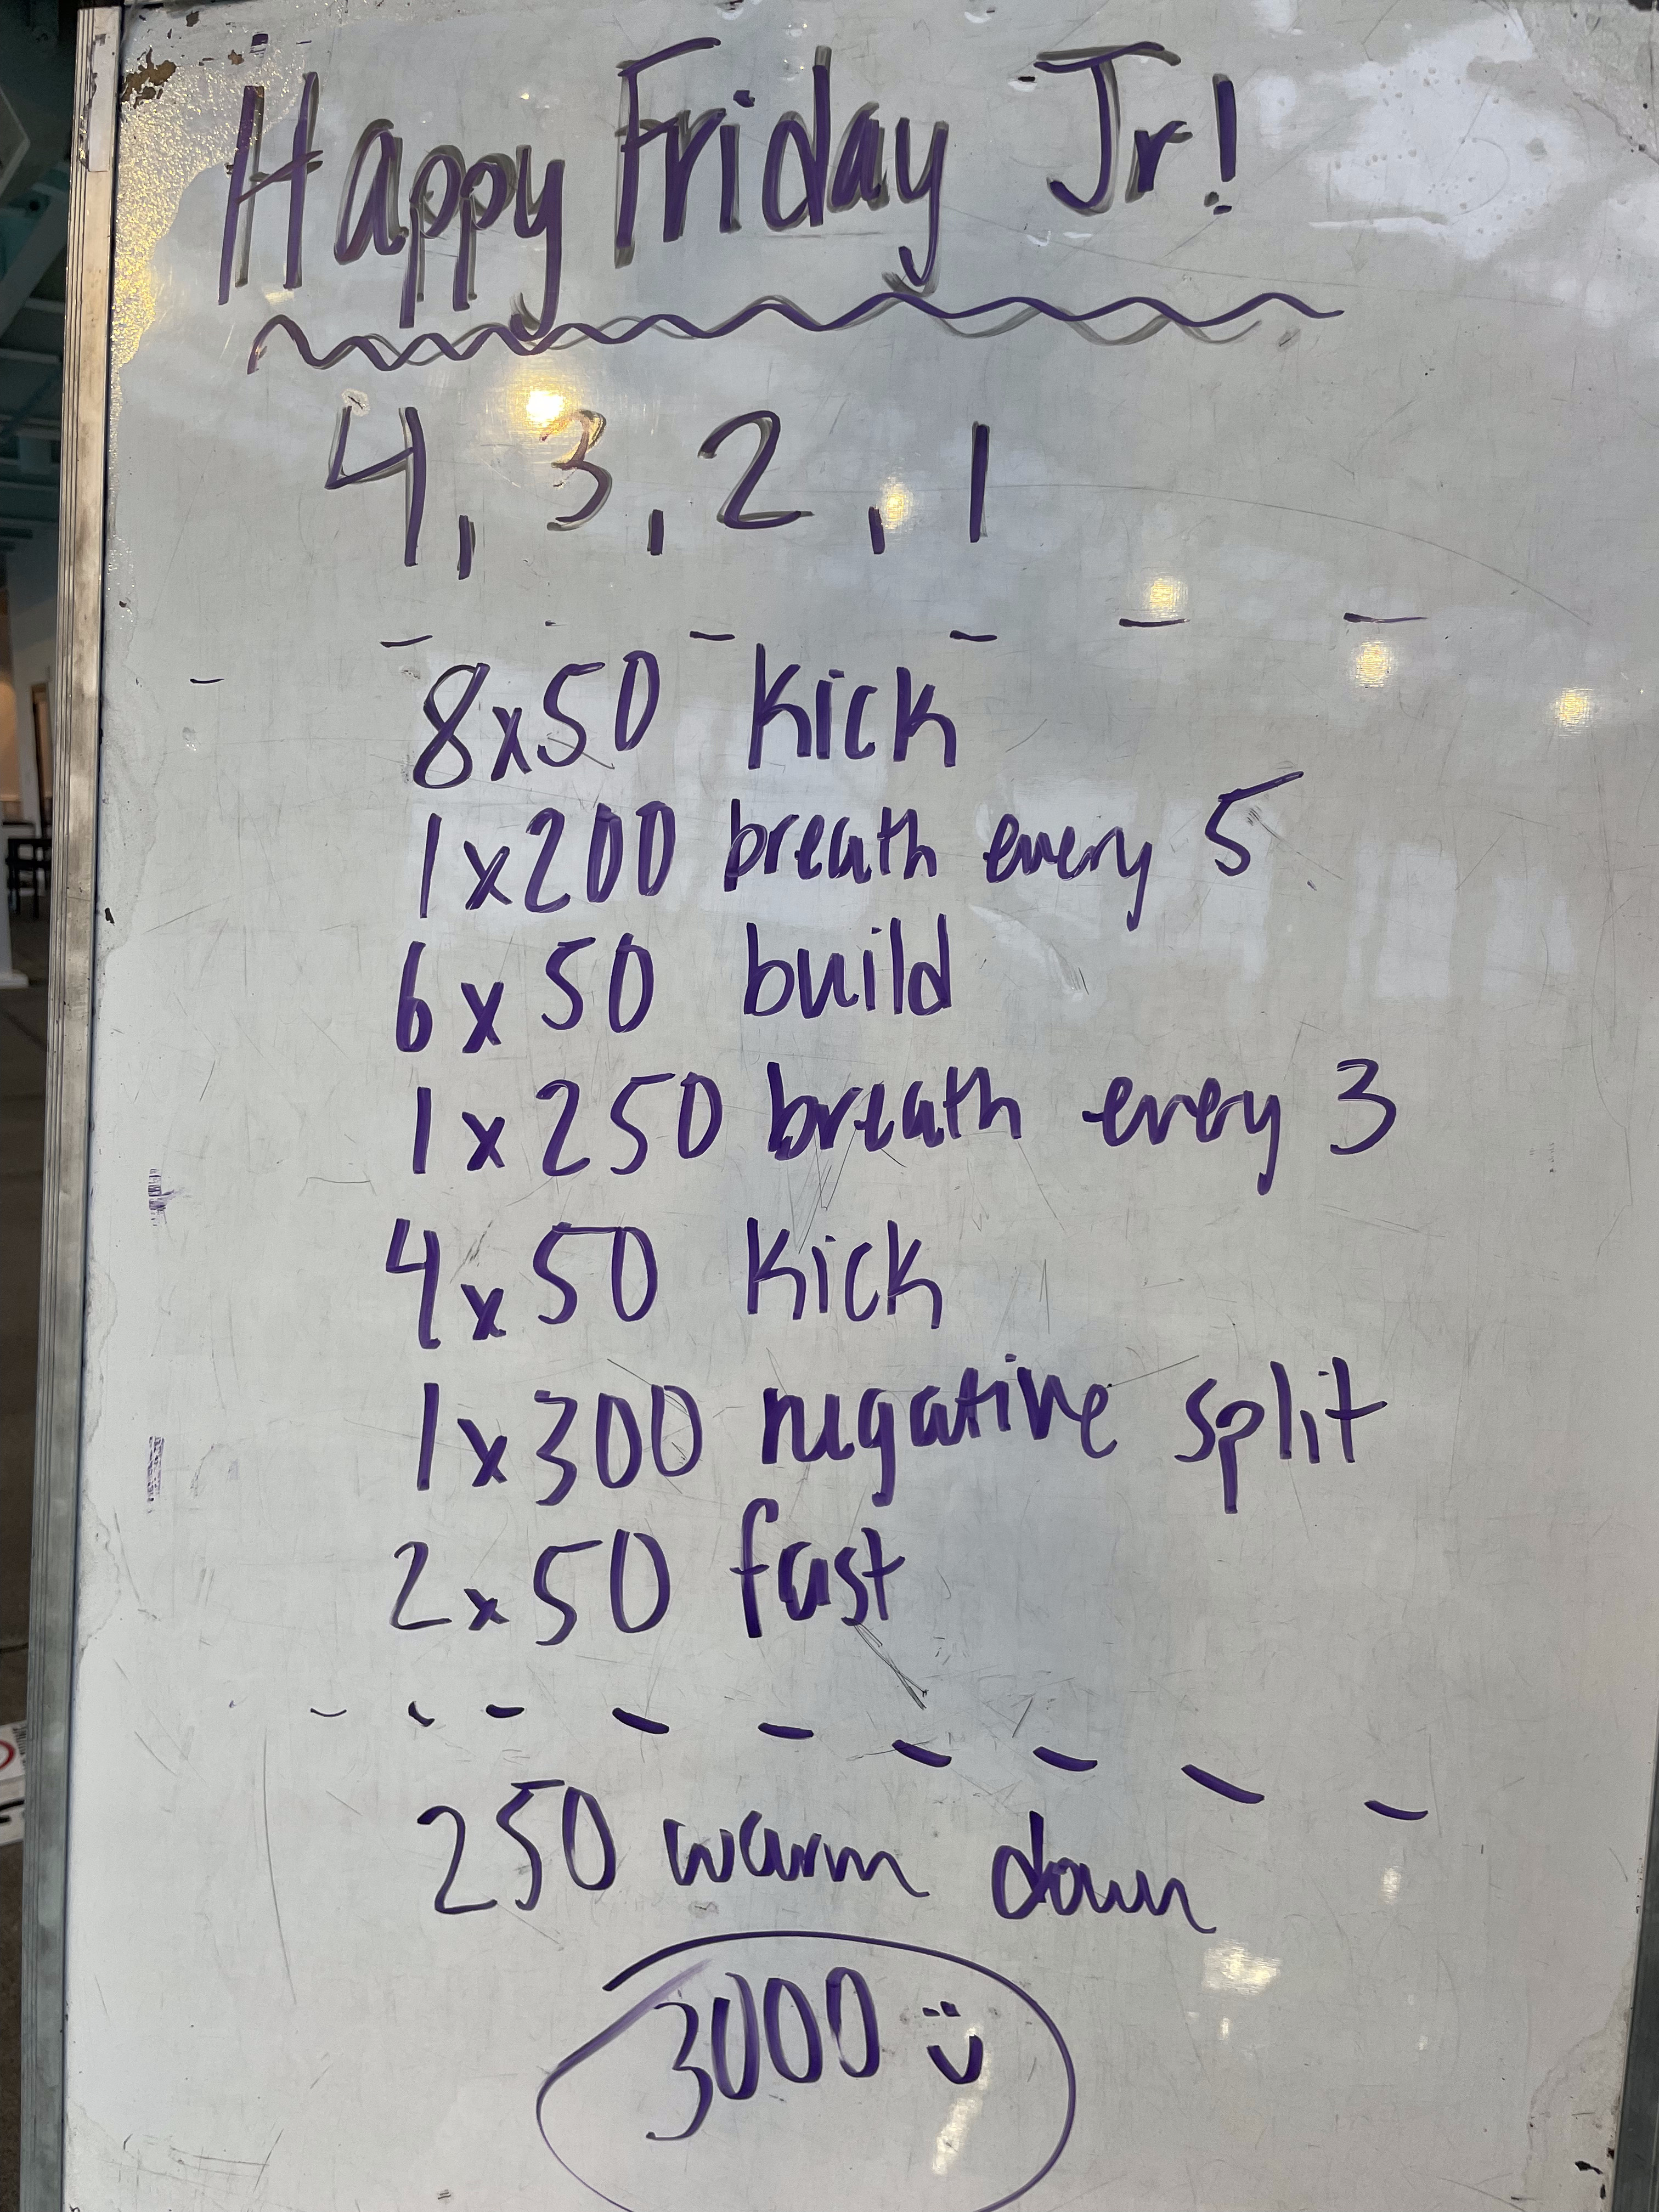 Happy Friday Jr!
4, 3, 2, 1
8x50 kick
1x200 breath every 5
6x50 build
1x250 breath every 3
4x50 kick
1x300 negative split
2x50 fast
250 warm down
3000